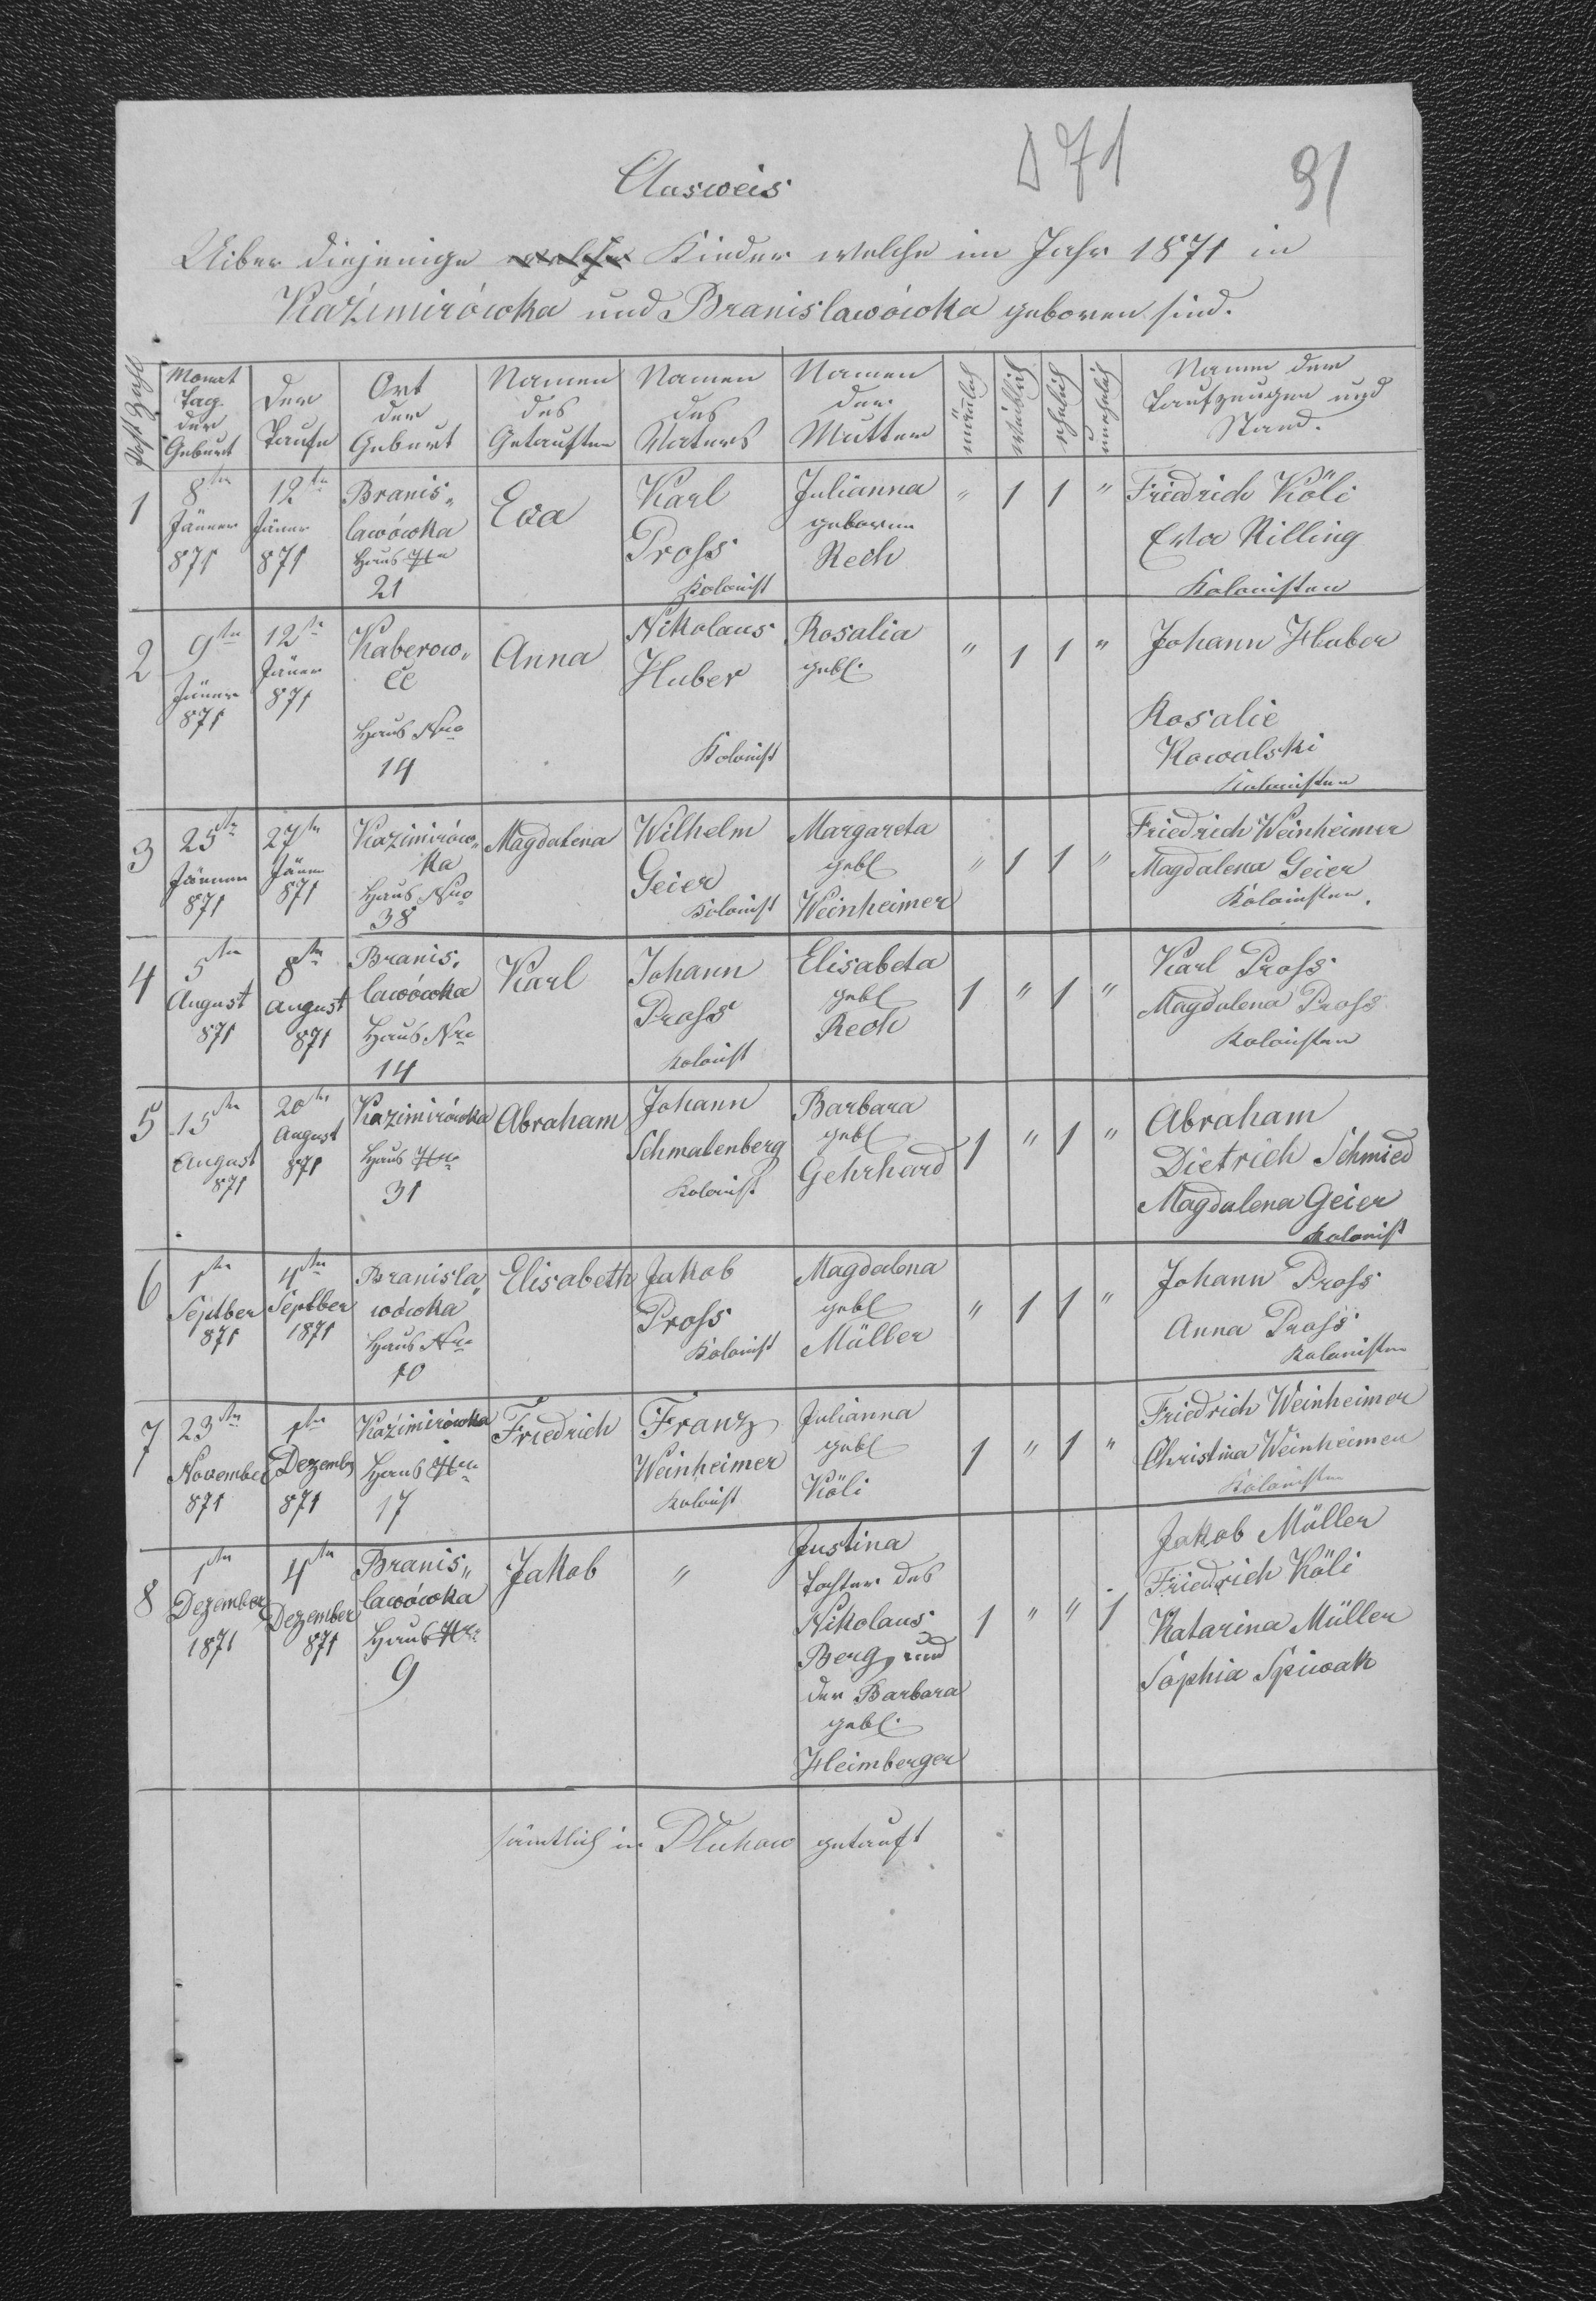 D 71
91
Ausweis
Uiber diejenige welche Kinder welche im Jahr 1871 in
Kaźimirówka und Branislawówka geboren sind.
Post Zahl
Monat Tag der Geburt
der Taufe
Ort der Geburt
Namen des Getauften
Namen des Vaters
Namen der Mutter
mänlich
weiblich
ehelich
unehelich
Namen der Taufzeugen und Stand.
1
8ten Jänner 871
12te Jäner 871
Branis„ lawówka Haus Nro 21
Eva
Karl Pross Kolonist
Julianna geborene Rech
" 1 1 "
Friedrich Köli
Eva Rilling
Kolonisten
2
9ten Jäner 871
12te Jäner 871
Kaberow„ ce Haus Nro 14
Anna
Nikolaus Huber Kolonist
Rosalia gebl.
" 1 1 "
Johann Huber
Rosalie
Kowalski
Kolonisten
3
25te Jänner 871
27te Jänn 871
Kazimirów„ ka Haus Nro 38
Magdalena
Wilhelm Geier Kolonist
Margareta gebl Weinheimer
" 1 1 "
Friedrich Weinheimer
Magdalena Geier
Kolonisten.
4
5ten August 871
8ten August 871
Branis„ lawówka Haus Nro 14
Karl
Johann Pross Kolonist
Elisabeta gebl Rech
1 " 1 "
Karl Pross
Magdalena Pross
Kolonisten
5
15ten August 871
20ten August 871
Kazimirówka Haus Nro 31
Abraham
Johann Schmalenberg Kolonist
Barbara gebl Gehrhard
1 " 1 "
Abraham
Dietrich Schmied
Magdalena Geier
Kolonist
6
1ten Septber 871
4ten Septber 1871
Branisla„ wówka Haus Nro 10
Elisabeth
Jakob Pross Kolonist
Magdalena gebl Müller
" 1 1 "
Johann Pross
Anna Pross
Kolonisten
7
23ten November 871
1ten Dezemb 871
Kaźimirówka Haus Nro 17
Friedrich
Franz Weinheimer Kolonist
Julianna gebl Köli
1 " 1 "
Friedrich Weinheimer
Christina Weinheimer
Kolonisten
8
1ten Dezember 1871
4ten Dezember 871
Branis„ lawówka Haus Nro 9
Jakob
"
Justina Tochter des Nikolaus Berg, und der Barbara gebl. Heimberger
1 " " 1
Jakob Müller
Friedrich Köli
Katarina Müller
Sophia Spiwak
sämtlich in Dluhow getauft